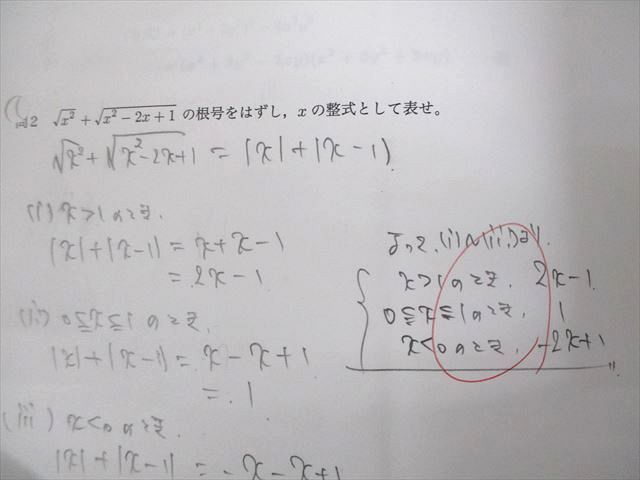 問2 √x² + √x² − 2x + 1 の根号をはずし，x の整式として表せ。
√x² + √x² − 2x + 1 = |x| + |x − 1|
(i) x > 1 のとき.
|x| + |x − 1| = x + x − 1
= 2x − 1
(ii) 0 ≦ x ≦ 1 のとき.
|x| + |x − 1| = x − x + 1
= 1
(iii) x < 0 のとき.
|x| + |x − 1| = − x − x + 1
よって. (i)〜(iii)より.
x > 1 のとき. 2x − 1
0 ≦ x ≦ 1 のとき. 1
x < 0 のとき. −2x + 1